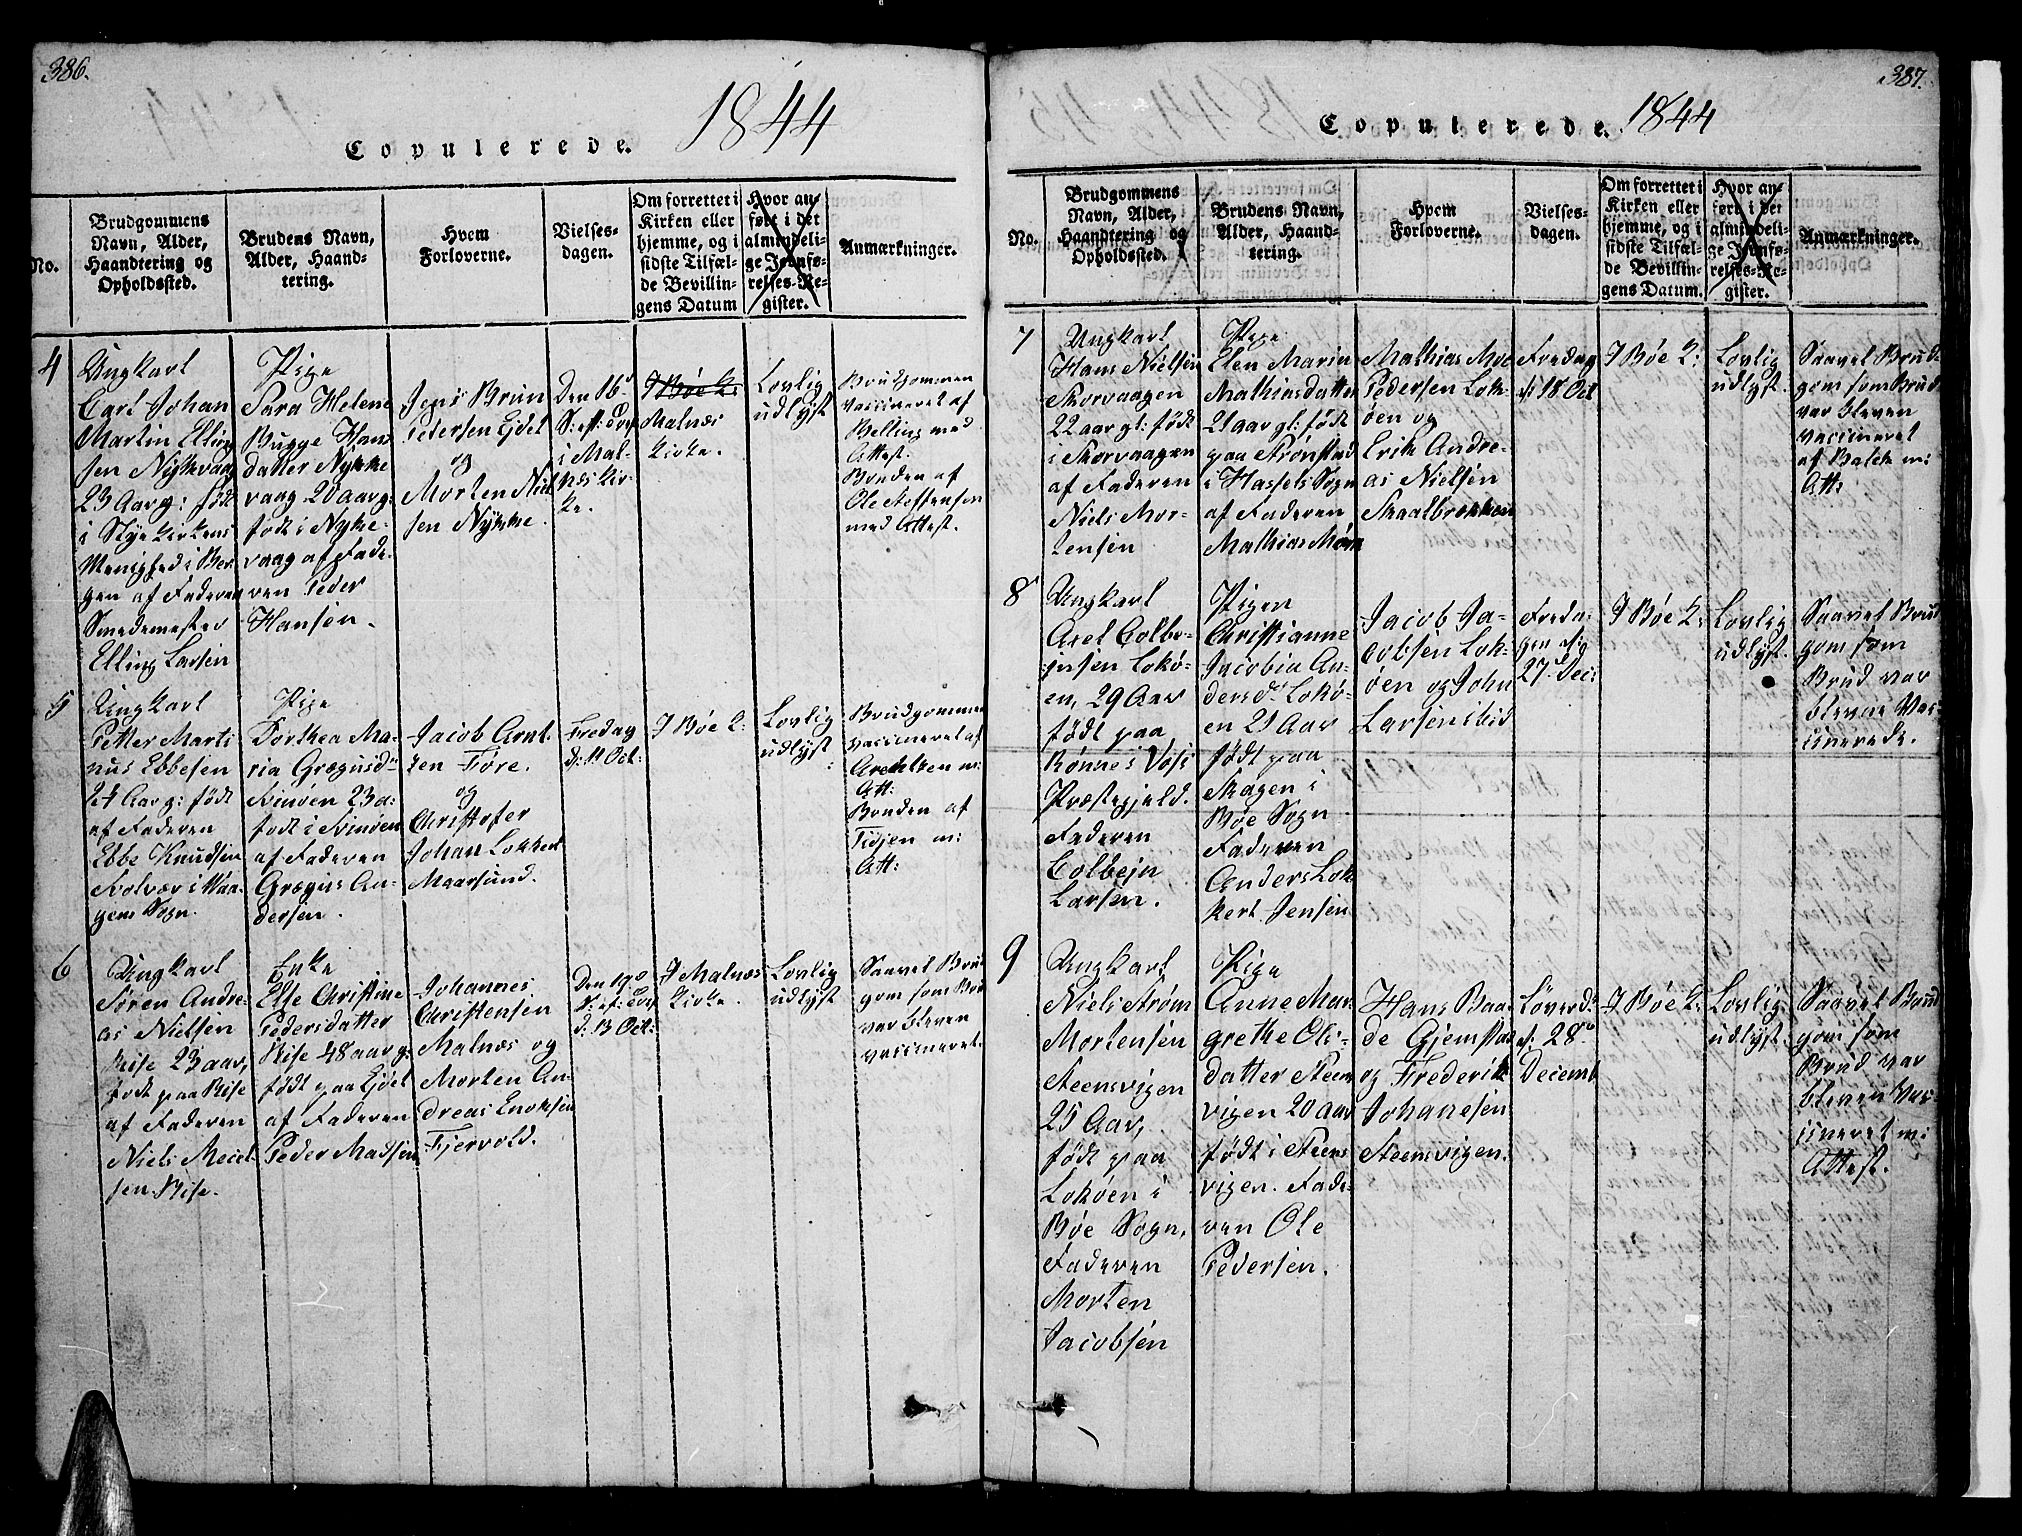 386.
1844
Copulerede.
No.
Brudgommens
Navn, Alder,
Haandtering og
Opholdssted.
Brudens Navn,
Alder, Haand-
tering.
Hvem
Forloverne.
Vielses-
dagen.
Om forrettet i
Kirken eller
hjemme, og i
sidste Tilfæl-
de Bevillin-
gens Datum
Hvor an-
ført i det
almindeli-
ge Jevnfø-
relses-Re-
gister.
Anmærkninger.
4
Ungkarl
Carl Johan
Martin Elling
sen Nykvaag
23 Aar g: født
i Kirkens
Menighed i Ber
gen af Faderen
Smedemester
Elling Larsen
Pige
Sara Helene
Bugge Hans
datter Nykke
vaag 20 aar g:
født i Nyke-
vaag af Fade-
ren Peder
Hansen.
Jens Brun
Petersen Eidet
og
Morten Niel
sen Nykke.
Den 16d
S: eft: Tref
i Mal-
næs Kir-
ke.
I Bøe K:
Malnæs
Kirke.
Lovlig
udlyst
Brudgommen
vaccineret af
Belling med
Attest.
Bruden af
Ole Steffensen
med Attest.
5
Ungkarl
Petter Marti
nus Ebbesen
24 Aar g: født
af Faderen
Ebbe Knudsen
Svolvær i Waa-
gens Sogn.
Pige
Dorthea Ma-
ria Græguisd:
Svinøen 23 a:
født i Svinøen
af Faderen
Græguis An-
dersen.
Jacob Arnt-
zen Føre.
og
Christofer
Johan Lokkert
Maarsund.
Fredag
d: 11 Oct:
I Bøe K:
Lovlig
udlyst
Brudgommen
vaccineret af
m:
Att:
Bruden af
m:
Att:
6
Ungkarl
Søren Andre-
as Nielsen
Rise 23 aar,
født paa Rise
af Faderen
Niels Meiel-
sen Rise.
Enke
Else Christine
Pedersdatter
Rise 48 aar g:
født paa Eidet
af Faderen
Peder Madsen
Johannes
Christensen
Malnæs og
Morten An-
dreas Enoksen
Fjervold.
Den 19d
S: ef: Tref
d: 13 Oct:
I Malnæs
Kirke.
Lovlig
udlyst
Saavel Brud
gom som Bru
var bleven
vaccineret.
387.
Copulerede.
1844
No.
Brudgommens
Navn, Alder,
Haandtering og
Opholdssted.
Brudens Navn,
Alder, Haand-
tering.
Hvem
Forloverne.
Vielses-
dagen.
Om forrettet i
Kirken eller
hjemme, og i
sidste Tilfæl-
de Bevillin-
gens Datum.
Hvor an-
ført i det
almindeli-
ge Jevnfø-
relses-Re-
gister.
Anmærkninger.
7
Ungkarl
Hans Nielsen
Skorvaagen
22 aar gl: født
i Skorvaagen
af Faderen
Niels Mor-
tensen
Pige
Elen Marin
Mathiasdatter
21 aar gl: født
paa Strønstad
i Hassels Sogn
af Faderen
Mathias
Mathias Moe
Pedersen Lok-
øen og
Erik Andre-
as Nielsen
Skaalbrækken
Fredag
d: 18 Oct
I Bøe K:
Lovlig
udlyst.
Saavel Brud
gom som Brud
var bleven
vaccineret
af Balch m:
Att:
8
Ungkarl
Axel Colbe-
jnsen Lokø-
en, 29 Aar
født paa
Rønnes
Præstegjeld.
Faderen
Colbejn
Larsen.
Pigen
Christianne
Jacobia An-
dersd: Lokø-
en 21 Aar
født paa
Skagen i
Bøe Sogn
Faderen
Anders Lok
kert Jensen
Jacob Ja-
cobsen Lok-
øen og John
Larsen ibid
Freda-
gen
27. Dec:
I Bøe K:
Lovlig
udlyst.
Saavel Brud
gom som
Brud var
blevne Vac-
cinerede.
9
Ungkarl
Niels Strøm
Mortensen
Steensvigen
25 Aar,
født paa
Lokøen i
Bøe Sogn,
Faderen
Morten
Jacobsen
Pige
Anne Mar-
grethe Ols-
datter Steens
vigen 20 aar
født i Steens
vigen. Fade-
ren Ole
Pedersen.
Hans Baa-
de Gjemstad
og Frederik
Johanesen
Steensvigen.
Løverd:
d: 28de
Decemb
I Bøe K:
Lovlig
udlyst.
Saavel Brud
gom som
Brud var
bleven Vac-
cineret m:
Attest.